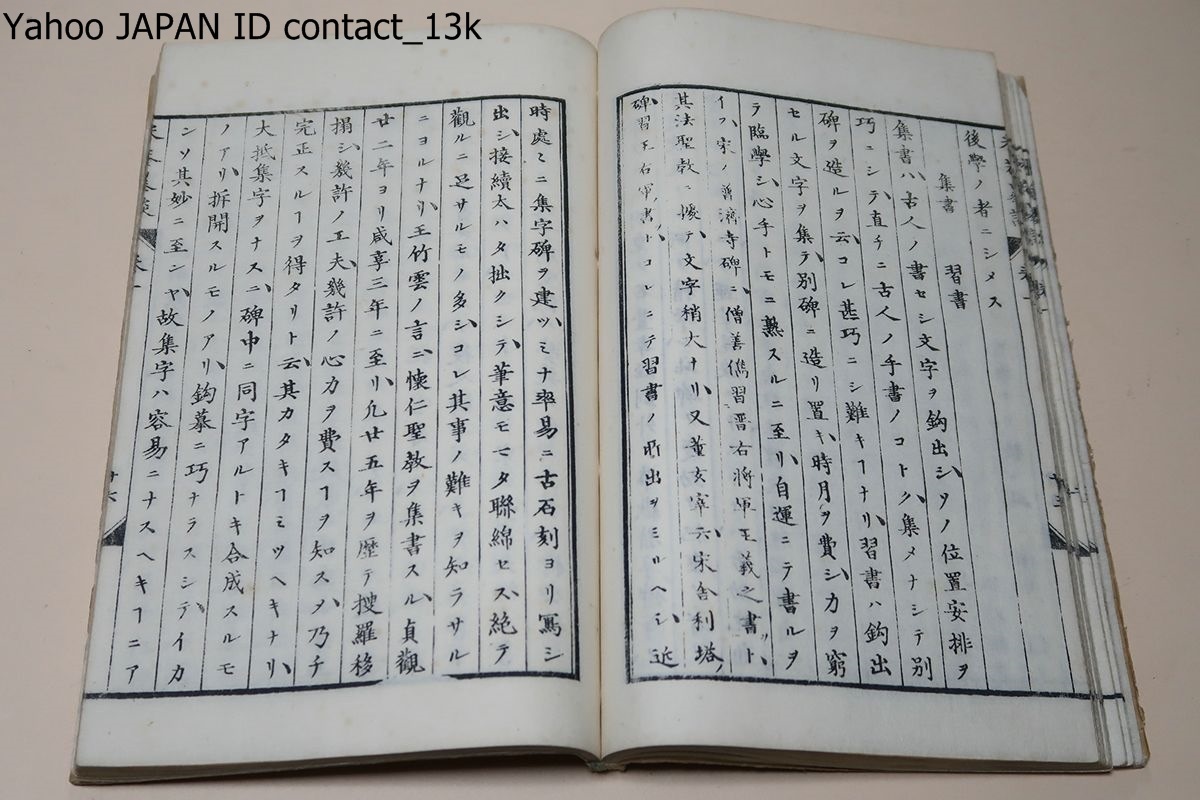 Yahoo JAPAN ID contact_13k
後學ノ者ニシメス
集書 習書
集書ハ古人ノ書セシ文字ヲ鈎出シソノ位置安排ヲ
巧ニシテ直チニ古人ノ手書ノコトク集メナシテ別
碑ヲ造ルヲ云コレ甚巧ニシ難キヿナリ習書ハ鈎出
セル文字ヲ集テ別碑ニ造リ置キ時月ヲ費シカヲ窮
テ臨學シ心手トモニ熟スルニ至リ自運ニテ書ルヲ
イフ宋ノ普濟寺碑ニ僧善儁習晋右將軍王羲之書ト
其法聖敎ニ擬テ文字稍大ナリ又董玄宰云宋舎利塔
碑習王右軍書トコレニテ習書ノ所出ヲミルヘシ近
時處〻ニ集字碑ヲ建ツミナ率易ニ古石刻ヨリ寫シ
出シ接續太ハタ拙クシテ筆意モマタ聯綿セス絶テ
觀ルニ足サルモノ多シコレ其事ノ難キヲ知ラサル
ニヨルナリ王竹雲ノ言ニ懷仁聖敎ヲ集書スル貞觀
廿二年ヨリ咸亨三年ニ至リ凡廿五年ヲ歴テ搜羅移
搨シ幾許ノ工夫幾許ノ心力ヲ費スヿヲ知スメ乃チ
完正スルヿヲ得タリト云其カタキヿミツヘキナリ
大抵集字ヲナスニ碑中ニ同字アルトキ合成スルモ
ノアリ拆開スルモノアリ鈎摹ニ巧ナラスシテイカ
ンソ其妙ニ至ンヤ故集字ハ容易ニナスヘキヿニア